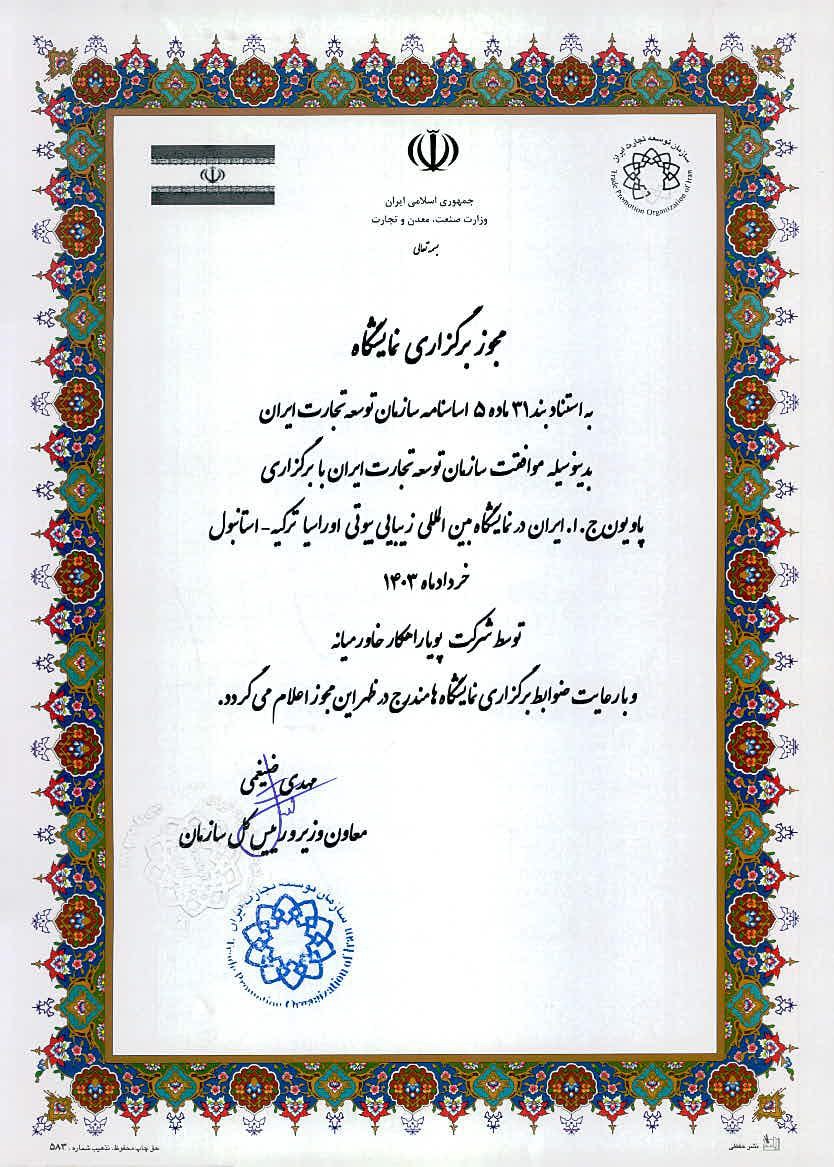 سازمان توسعه تجارت ایران
Trade Promotion Organization of Iran
جمهوری اسلامی ایران
وزارت صنعت، معدن و تجارت
بسمه تعالی
مجوز برگزاری نمایشگاه
به استناد بند ۳۱ ماده ۵ اساسنامه سازمان توسعه تجارت ایران
بدینوسیله موافقت سازمان توسعه تجارت ایران با برگزاری
پاویون ج.ا.ایران در نمایشگاه بین المللی زیبایی بیوتی اوراسیا ترکیه - استانبول
خرداد ماه ۱۴۰۳
توسط شرکت پویا راهکار خاورمیانه
و با رعایت ضوابط برگزاری نمایشگاه ها مندرج در ظهر این مجوز اعلام می گردد.
مهدی ضیغمی
معاون وزیر و رئیس کل سازمان
سازمان توسعه تجارت ایران
Trade Promotion Organization of Iran
نشر حفظی
حق چاپ محفوظ، تذهیب شماره : ۵۸۳